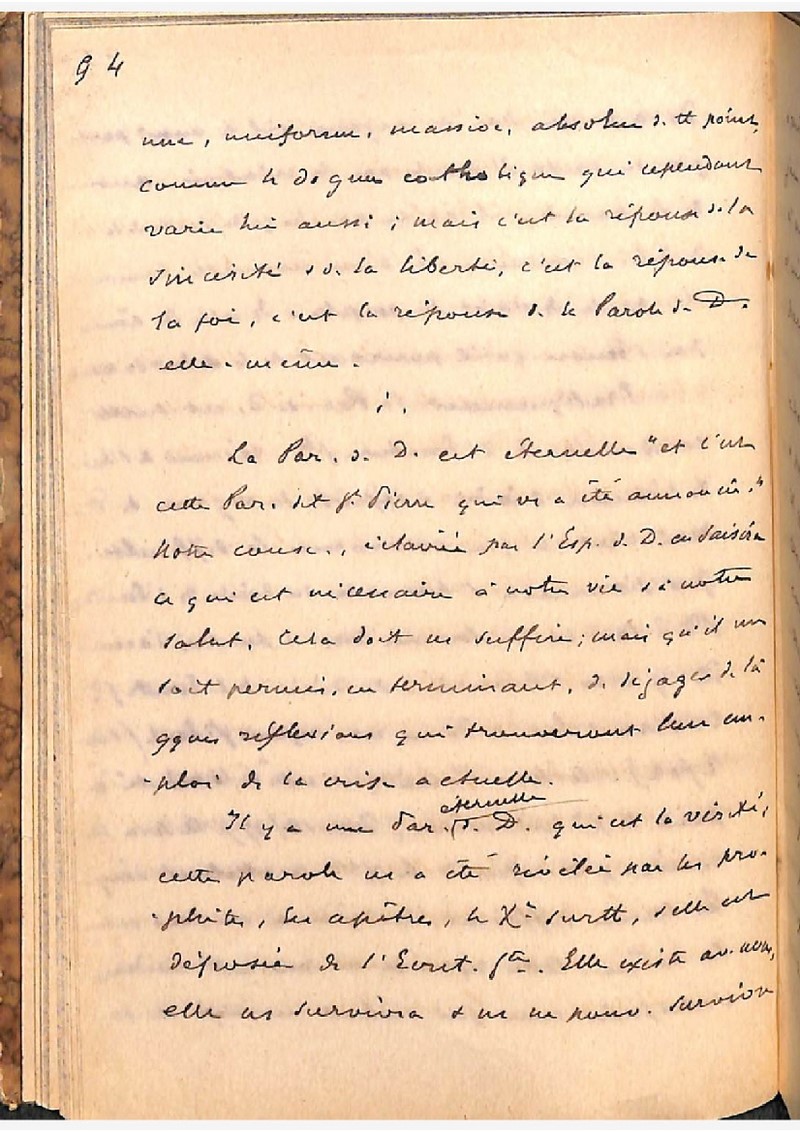 94
une, uniforme, massive, absolue s. tt point,
comme le dogme catholique qui cependant
varie lui aussi ; mais c'est la réponse de la
sincérité & d. la liberté, c'est la réponse de
la foi, c'est la réponse d. la Parole d. D.
elle-même.
La Par. d. D. est éternelle "et c'est
cette Par. dit St Pierre qui vs a été annoncée."
Notre consc., éclairée par l'Esp. d. D. en saisira
ce qui est nécessaire à notre vie & à notre
salut. Cela doit ns suffire ; mais qu'il me
soit permis, en terminant, de dégager de là
qques réflexions qui trouveront leur em-
-ploi de la crise actuelle.
Il y a une Par. éternelle d. D. qui est la vérité,
cette parole ns a été révélée par les pro-
-phètes, les apôtres, le Xt surtt, & elle est
déposée ds l'Ecrit. Ste. Elle existe av. nous,
elle ns survivra & ns ne pouv. survivre